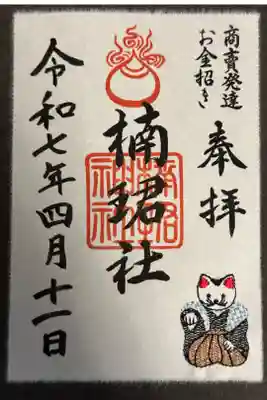 商売発達
お金招き
奉拝
楠珺社
令和七年四月十一日